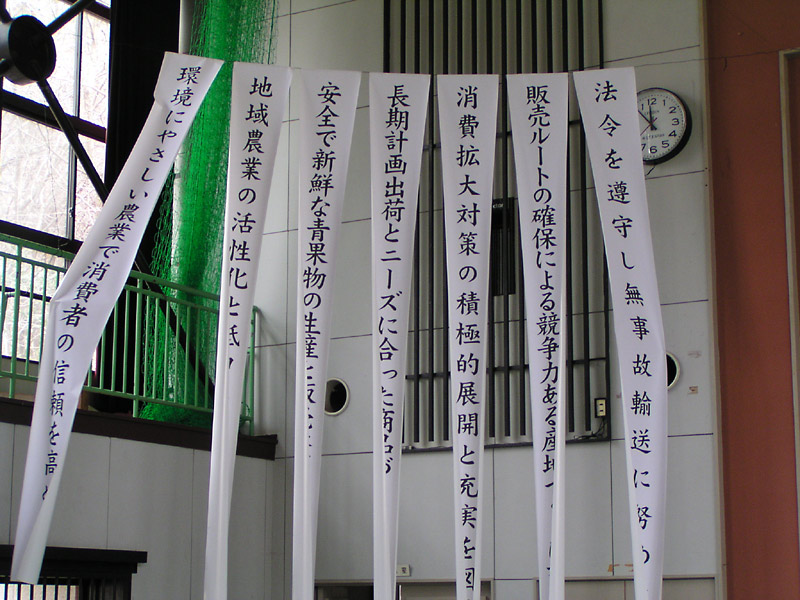 法令を遵守し無事故輸送に努め
販売ルートの確保による競争力ある産地
消費拡大対策の積極的展開と充実を図
長期計画出荷とニーズに合った商品
安全で新鮮な青果物の生産
地域農業の活性化と
環境にやさしい農業で消費者の信頼を高